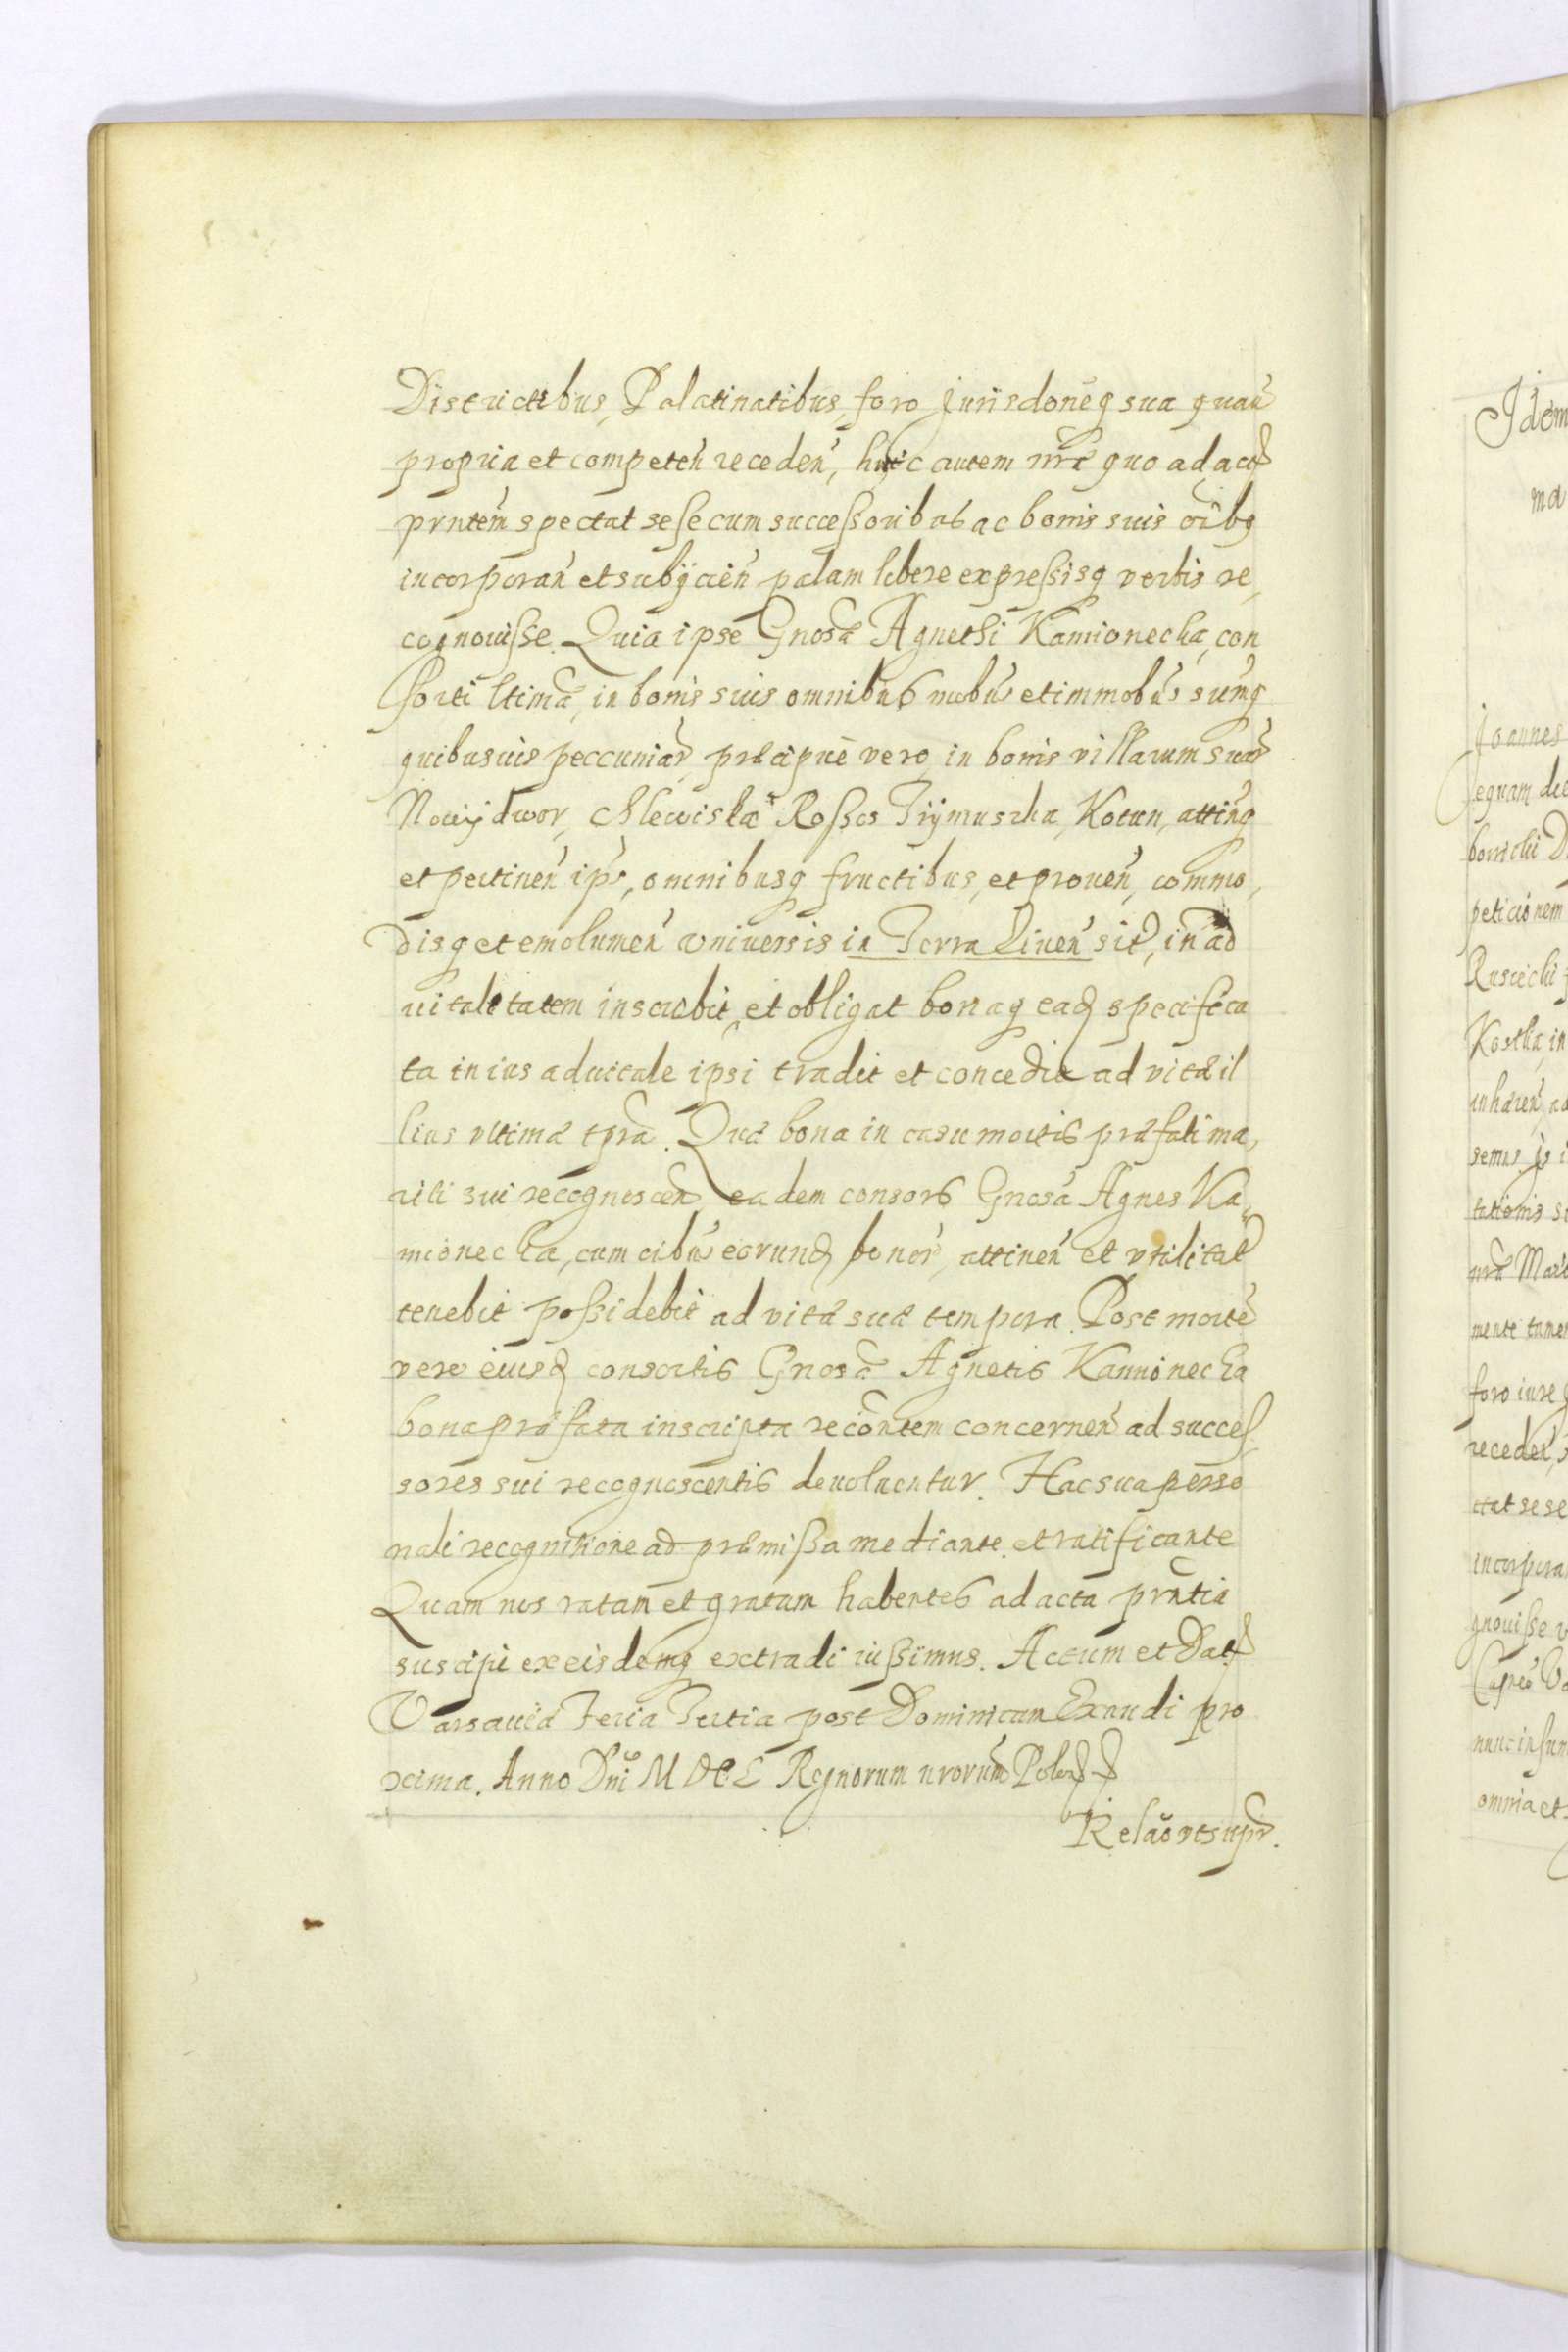 Districtibus, Palatinatibus, foro Jurisdoneq sua quavi
propria et competen receden, huic autem nrae quo ad act
prntem spectat sese cum successoribus ac bonis suis oibq
incorporan et subijcien palam libere expressisq verbis re,
cognouisse. Quia ipse Gnosae Agnethi Kamionecka, con
sorti ltimae, in bonis suis omnibus mobus et immobus sumq
quibusuis peccuniar, praecipue vero in bonis villarum suar
Nowÿ dwor, Chlewiska Rossos Trÿmuszka, Kotun, attinq
et pertinen ips, omnibusq fructibus, et prouen, commo,
disq et emolumen vniuersis in Terra Liuen sit, in ad
uitalitatem inscribit, et obligat bonaq ead specifica
ta in ius aduitale ipsi tradit et concedit ad vitae il
lius vltimae tpra. Quae bona in casu mortis praefati ma,
riti sui recognoscen eadem consors Gnosa Agnes Ka,
mionecka, cum oibus eorund bonor, attinen et vtilitat
tenebit possidebit ad vitae suae tempora. Post morte
vero eiusd consortis Gnosae Agnetis Kamionecka
bona praefata inscripta recontem concernen ad succes,
sores sui recognoscentis deuoluentur. Hac sua perso
nali recognitione ad praemissa mediante et ratificante
Quam nos ratam et gratam habentes ad acta prntia
suscipi ex eisdemq extradi iussimus. Actum et Dat
Varsauiae Feria Tertia post Dominicam Exaudi pro
xima. Anno Dni MDCL Regnorum nrorum Polo
Relao vt supr.
Idem
ma
Joannes